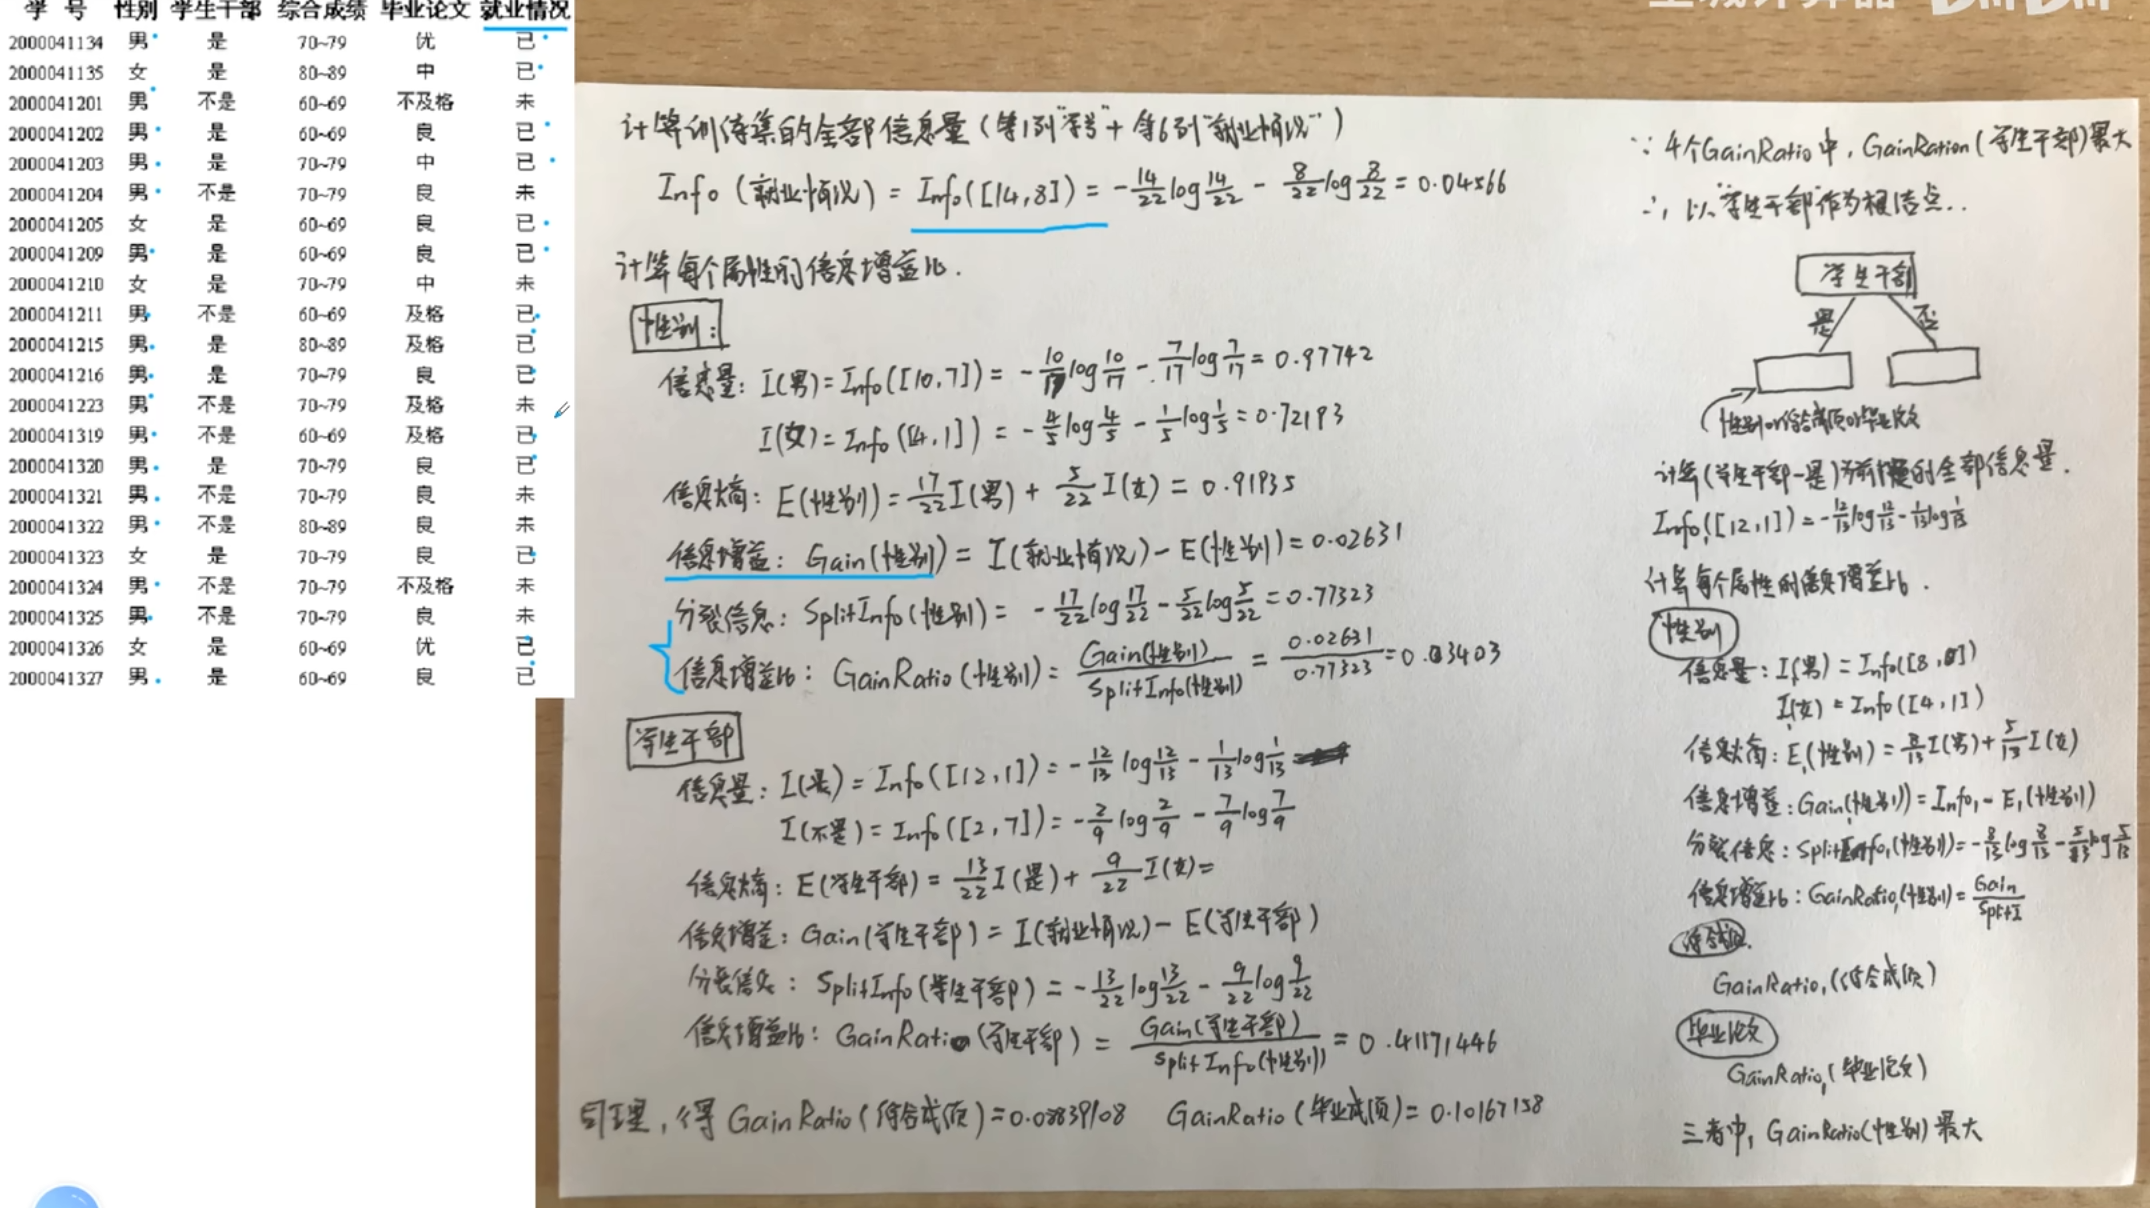 学 号 性别 学生干部 综合成绩 毕业论文 就业情况
2000041134 男 是 70~79 优 已
2000041135 女 是 80~89 中 已
2000041201 男 不是 60~69 不及格 未
2000041202 男 是 60~69 良 已
2000041203 男 是 70~79 中 已
2000041204 男 不是 70~79 良 未
2000041205 女 是 60~69 良 已
2000041209 男 是 60~69 良 已
2000041210 女 是 70~79 中 未
2000041211 男 不是 60~69 及格 已
2000041215 男 是 80~89 及格 已
2000041216 男 是 70~79 良 已
2000041223 男 不是 70~79 及格 未
2000041319 男 不是 60~69 及格 已
2000041320 男 是 70~79 良 已
2000041321 男 不是 70~79 良 未
2000041322 男 不是 80~89 良 未
2000041323 女 是 70~79 良 已
2000041324 男 不是 70~79 不及格 未
2000041325 男 不是 70~79 良 未
2000041326 女 是 60~69 优 已
2000041327 男 是 60~69 良 已
计算训练集的全部信息量(第1列"学号"+第6列"就业情况")
Info(就业情况)=Info([14,8])=-14/22log14/22-8/22log8/22=0.04566
计算每个属性的信息增益比.
性别:
信息量:I(男)=Info([10,7])=-10/17log10/17-7/17log7/17=0.97742
I(女)=Info([4,1])=-4/5log4/5-1/5log1/5=0.72193
信息熵:E(性别)=17/22I(男)+5/22I(女)=0.91935
信息增益:Gain(性别)=I(就业情况)-E(性别)=0.02631
分裂信息:SplitInfo(性别)=-17/22log17/22-5/22log5/22=0.77323
信息增益比:GainRatio(性别)=Gain(性别)/SplitInfo(性别)=0.02631/0.77323=0.03403
学生干部
信息量:I(是)=Info([12,1])=-12/13log12/13-1/13log1/13
I(不是)=Info([2,7])=-2/9log2/9-7/9log7/9
信息熵:E(学生干部)=13/22I(是)+9/22I(女)=
信息增益:Gain(学生干部)=I(就业情况)-E(学生干部)
分裂信息:SplitInfo(学生干部)=-13/22log13/22-9/22log9/22
信息增益比:GainRatio(学生干部)=Gain(学生干部)/SplitInfo(性别)=0.41171446
同理,得GainRatio(综合成绩)=0.08839108 GainRatio(毕业成绩)=0.10167158
∵4个GainRatio中,GainRation(学生干部)最大
∴以"学生干部"作为根结点..
学生干部
是 否
性别or综合成绩or毕业论文
计算(学生干部-是)为前提的全部信息量.
Info1([12,1])=-12/13log12/13-1/13log1/13
计算每个属性的信息增益比.
性别
信息量:I(男)=Info([8,0])
I(女)=Info([4,1])
信息熵:E1(性别)=8/13I(男)+5/13I(女)
信息增益:Gain(性别)=Info1-E1(性别)
分裂信息:SplitInfo1(性别)=-8/13log8/13-5/13log5/13
信息增益比:GainRatio1(性别)=Gain/SplitI
GainRatio1(综合成绩)
毕业论文
GainRatio1(毕业论文)
三者中,GainRatio(性别)最大